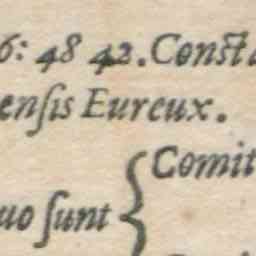 6: 48 42. Consta
ensis Eureux.
Comit
uo sunt